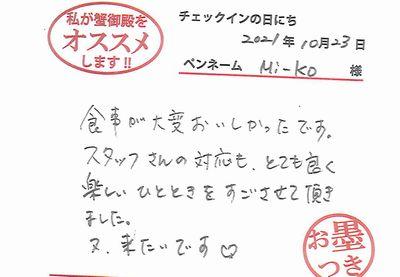 私が蟹御殿を
オススメ
します!!
チェックインの日にち
2021年 10月23日
ペンネーム Mi-Ko 様
食事が大変おいしかったです。
スタッフさんの対応も、とても良く
楽しいひとときをすごさせて頂き
ました。
又、来たいです♡
お墨
つき